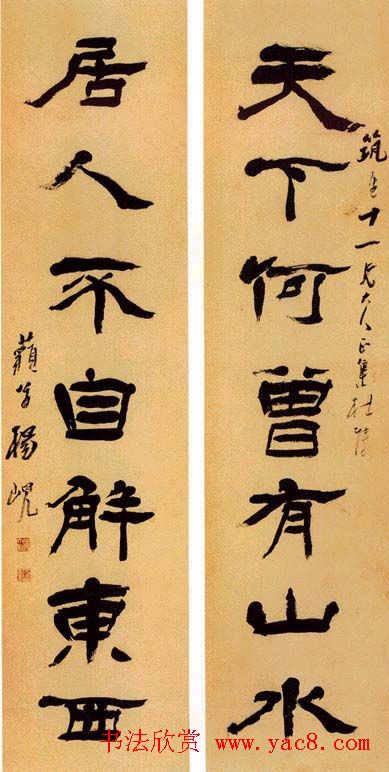 天下何曾有山水
筑生十一兄大人正集杜陵
居人不自解東西
藐翁楊峴
书法欣赏 www.yac8.com